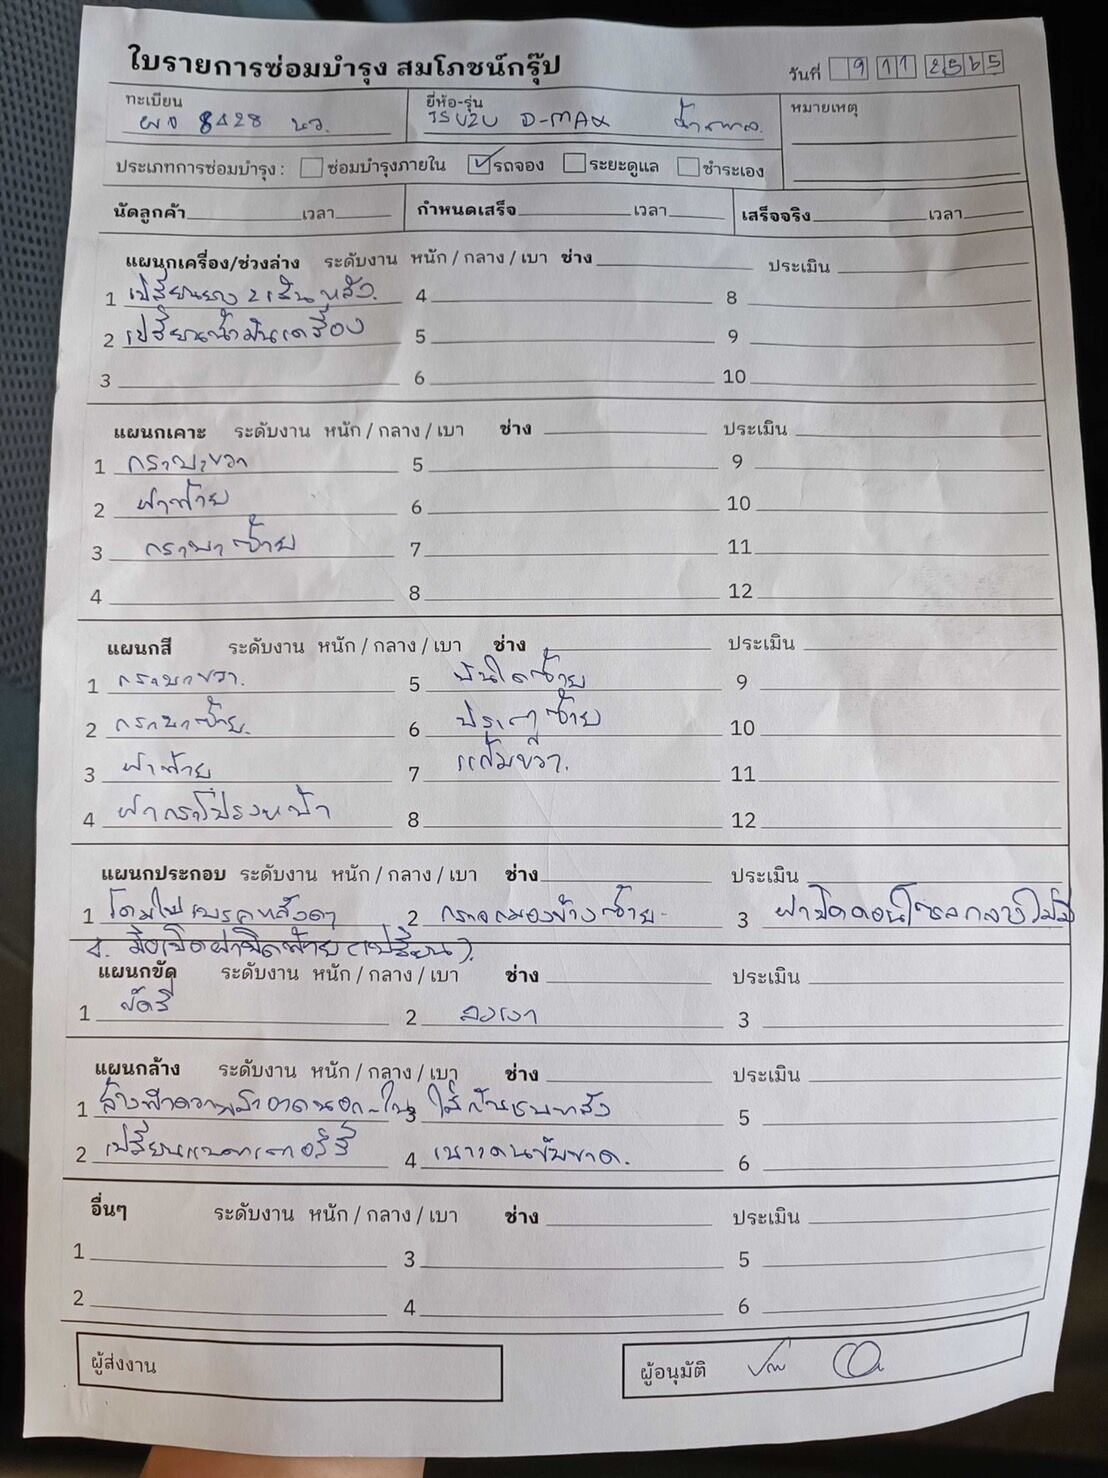 ใบรายการซ่อมบำรุง สมโภชน์กรุ๊ป
วันที่ 9 11 2565
ทะเบียน
ผจ 8428 นว.
ยี่ห้อ-รุ่น
ISUZU D-MAX
หมายเหตุ
ประเภทการซ่อมบำรุง : ซ่อมบำรุงภายใน ✓ รถจอง ระยะดูแล ชำระเอง
นัดลูกค้า เวลา กำหนดเสร็จ เวลา เสร็จจริง เวลา
แผนกเครื่อง/ช่วงล่าง ระดับงาน หนัก / กลาง / เบา ช่าง ประเมิน
1 เปลี่ยนยาง 2 เส้น หลัง. 4 8
2 เปลี่ยนน้ำมันเครื่อง 5 9
3 6 10
แผนกเคาะ ระดับงาน หนัก / กลาง / เบา ช่าง ประเมิน
1 กระบะขวา 5 9
2 ฝาท้าย 6 10
3 กระบะซ้าย 7 11
4 8 12
แผนกสี ระดับงาน หนัก / กลาง / เบา ช่าง ประเมิน
1 กระบะขวา. 5 บันไดซ้าย 9
2 กระบะซ้าย. 6 ประตูซ้าย 10
3 ฝาท้าย 7 แก้มขวา. 11
4 ฝากระโปรงหน้า 8 12
แผนกประกอบ ระดับงาน หนัก / กลาง / เบา ช่าง ประเมิน
1 โคมไฟเบรคหลังดๆ 2 กระจกมองข้างซ้าย - 3 ฝาปิดคอนโซลกลางไม่มี
4. มือเปิดฝาปิดท้าย (เปลี่ยน).
แผนกขัด ระดับงาน หนัก / กลาง / เบา ช่าง ประเมิน
1 ขัดสี 2 ลงเงา 3
แผนกล้าง ระดับงาน หนัก / กลาง / เบา ช่าง ประเมิน
1 ล้างทำความสะอาดนอก-ใน 3 ใส่กันชนหลัง 5
2 เปลี่ยนแบตเตอรี่ 4 เบาะคนขับขาด. 6
อื่นๆ ระดับงาน หนัก / กลาง / เบา ช่าง ประเมิน
1 3 5
2 4 6
ผู้ส่งงาน
ผู้อนุมัติ